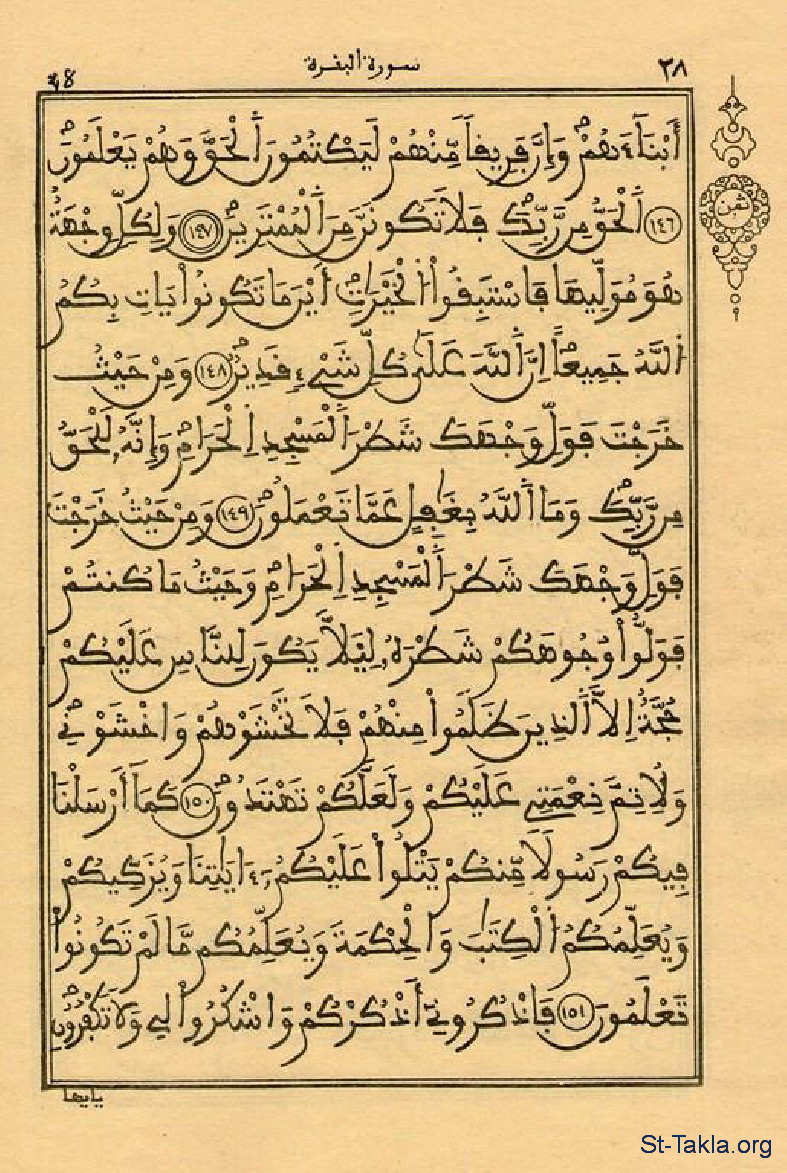 سورة البقرة ٢٨
أَبْنَآءَهُمْ وَإِنَّ فَرِيقاً مِّنْهُمْ لَيَكْتُمُونَ اَلْحَقَّ وَهُمْ يَعْلَمُونَ
١٤٦ اَلْحَقُّ مِن رَّبِّكَ فَلاَ تَكُونَنَّ مِنَ اَلْمُمْتَرِينَ ١٤٧ وَلِكُلٍّ وِجْهَةٌ
ثمن
هُوَ مُوَلِّيهَا فَاسْتَبِقُواْ اُلْخَيْرَٰتِ أَيْنَ مَا تَكُونُواْ يَاتِ بِكُمُ
اُللَّهُ جَمِيعاً اِنَّ اَللَّهَ عَلَىٰ كُلِّ شَيْءٍ قَدِيرٌ ١٤٨ وَمِنْ حَيْثُ
خَرَجْتَ فَوَلِّ وَجْهَكَ شَطْرَ اَلْمَسْجِدِ اِلْحَرَامِ وَإِنَّهُۥ لَلْحَقُّ
مِن رَّبِّكَ وَمَا اَللَّهُ بِغَٰفِلٍ عَمَّا تَعْمَلُونَ ١٤٩ وَمِنْ حَيْثُ خَرَجْتَ
فَوَلِّ وَجْهَكَ شَطْرَ اَلْمَسْجِدِ اِلْحَرَامِ وَحَيْثُ مَا كُنتُمْ
فَوَلُّواْ وُجُوهَكُمْ شَطْرَهُۥ لِيَلاَّ يَكُونَ لِلنَّاسِ عَلَيْكُمْ
حُجَّةٌ اِلاَّ اَلذِينَ ظَلَمُواْ مِنْهُمْ فَلاَ تَخْشَوْهُمْ وَاخْشَوْنِے
وَلِأُتِمَّ نِعْمَتِے عَلَيْكُمْ وَلَعَلَّكُمْ تَهْتَدُونَ ١٥٠ كَمَا أَرْسَلْنَا
فِيكُمْ رَسُولاً مِّنكُمْ يَتْلُواْ عَلَيْكُمُۥٓ ءَايَٰتِنَا وَيُزَكِّيكُمْ
وَيُعَلِّمُكُمُ اُلْكِتَٰبَ وَالْحِكْمَةَ وَيُعَلِّمُكُم مَّا لَمْ تَكُونُواْ
تَعْلَمُونَ ١٥١ فَاذْكُرُونِے أَذْكُرْكُمْ وَاشْكُرُواْ لِے وَلاَ تَكْفُرُونِ
يايها
St-Takla.org